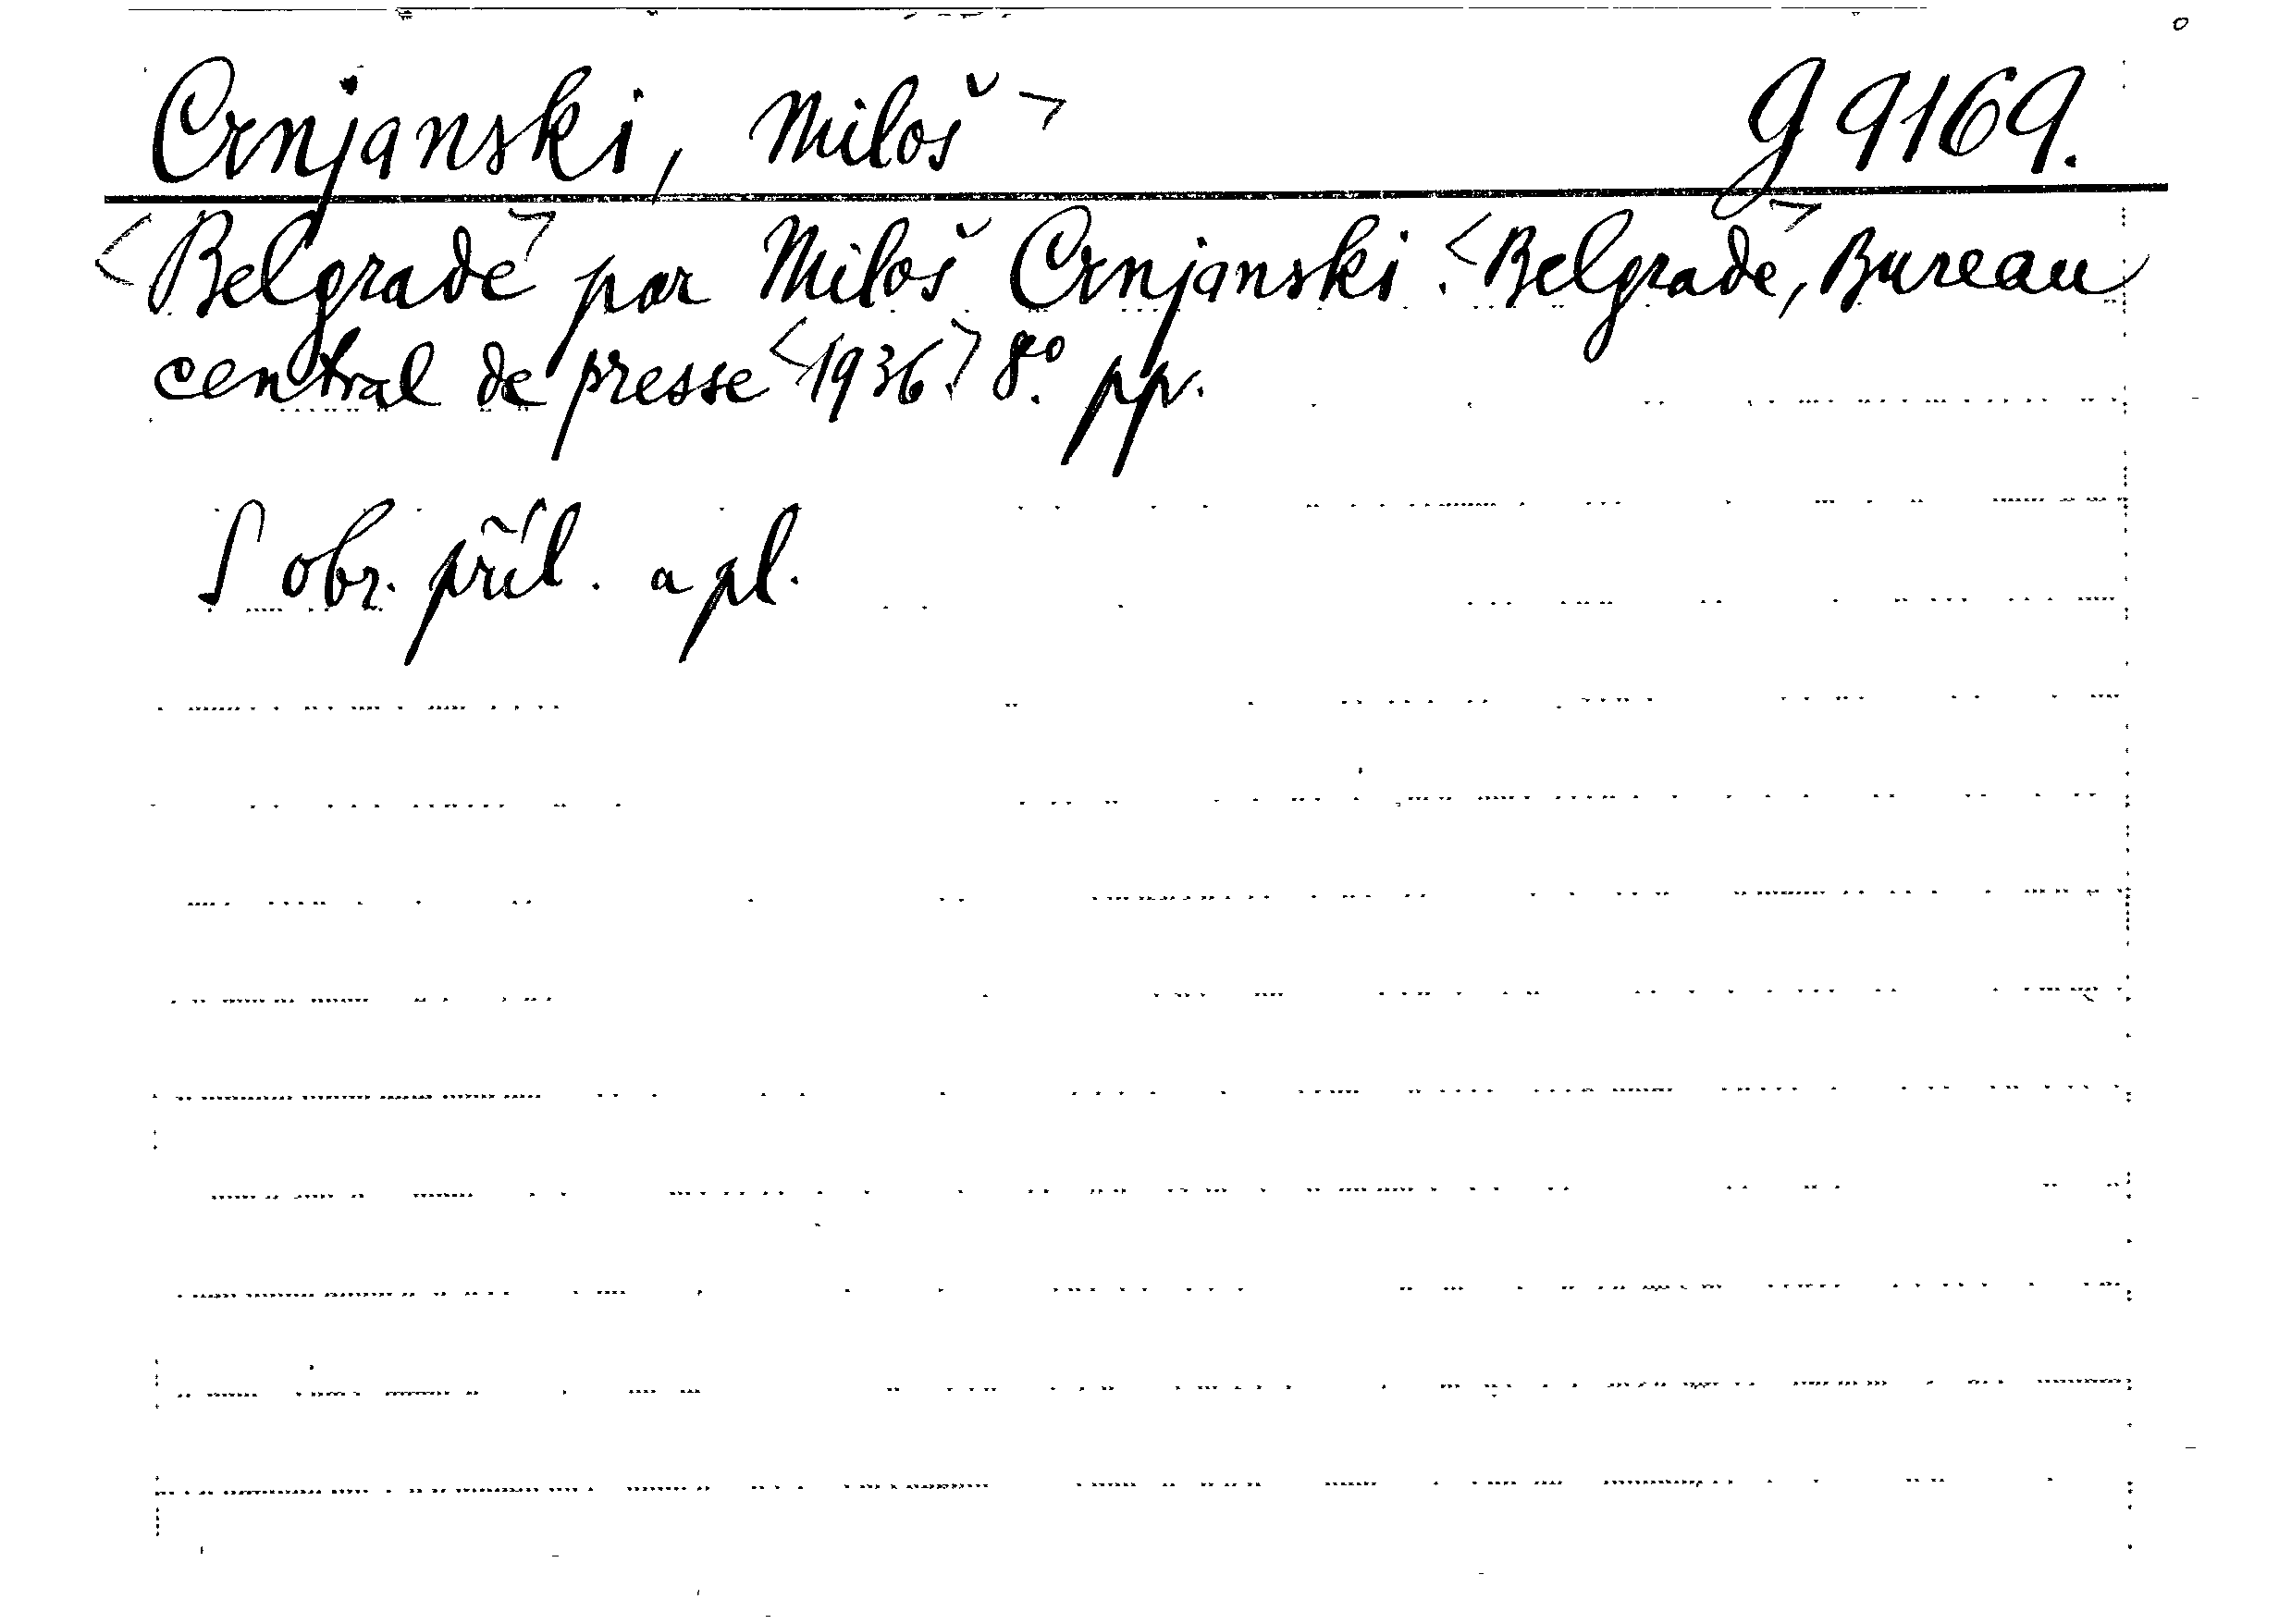 Crnjanski, Miloš> g 9169.
<Belgrade> par Miloš Crnjanski. <Belgrade>, Bureau
central de presse <1936.> 8º. pp.
S obr. příl. a pl.